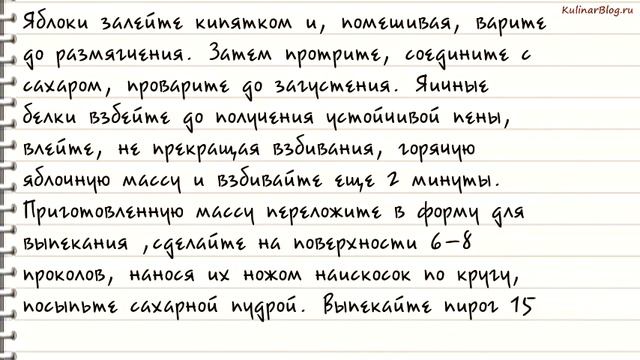 KulinarBlog.ru
Яблоки залейте кипятком и, помешивая, варите
до размягчения. Затем протрите, соедините с
сахаром, проварите до загустения. Яичные
белки взбейте до получения устойчивой пены,
влейте, не прекращая взбивания, горячую
яблочную массу и взбивайте еще 2 минуты.
Приготовленную массу переложите в форму для
выпекания ,сделайте на поверхности 6–8
проколов, нанося их ножом наискосок по кругу,
посыпьте сахарной пудрой. Выпекайте пирог 15